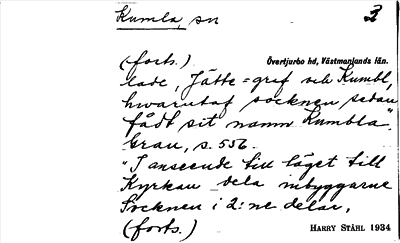 Kumla, sn 3
(forts.) Övertjurbo hd, Västmanlands län.
lade, Jätte=graf och Kumbl,
hwarutaf socknen sedan
fådt sit namn Kumbla".
Grau, s. 556.
"I anseende till läget till
Kyrkan dela inbyggarne
Socknen i 2:ne delar,
(forts.) HARRY STÅHL 1934